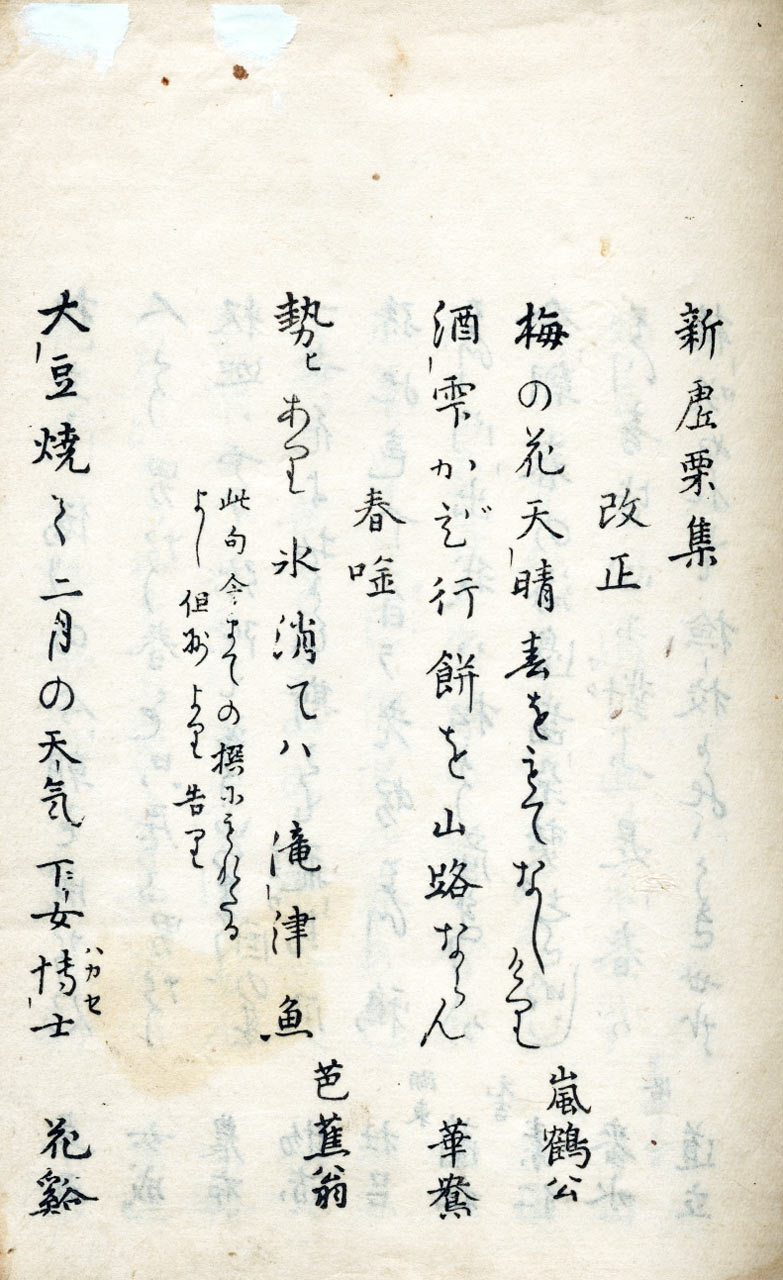 新虚栗集
改正
梅の花天晴春をもてなしけり
嵐鶴公
酒雫かび行餅を山路ならん
華鴦
春唫
勢ヒあり氷消てハ滝津魚
芭蕉翁
此句今までの撰にもれたる
よし但州より告里
大豆焼く二月の天気下女博士
ハカセ
花谿